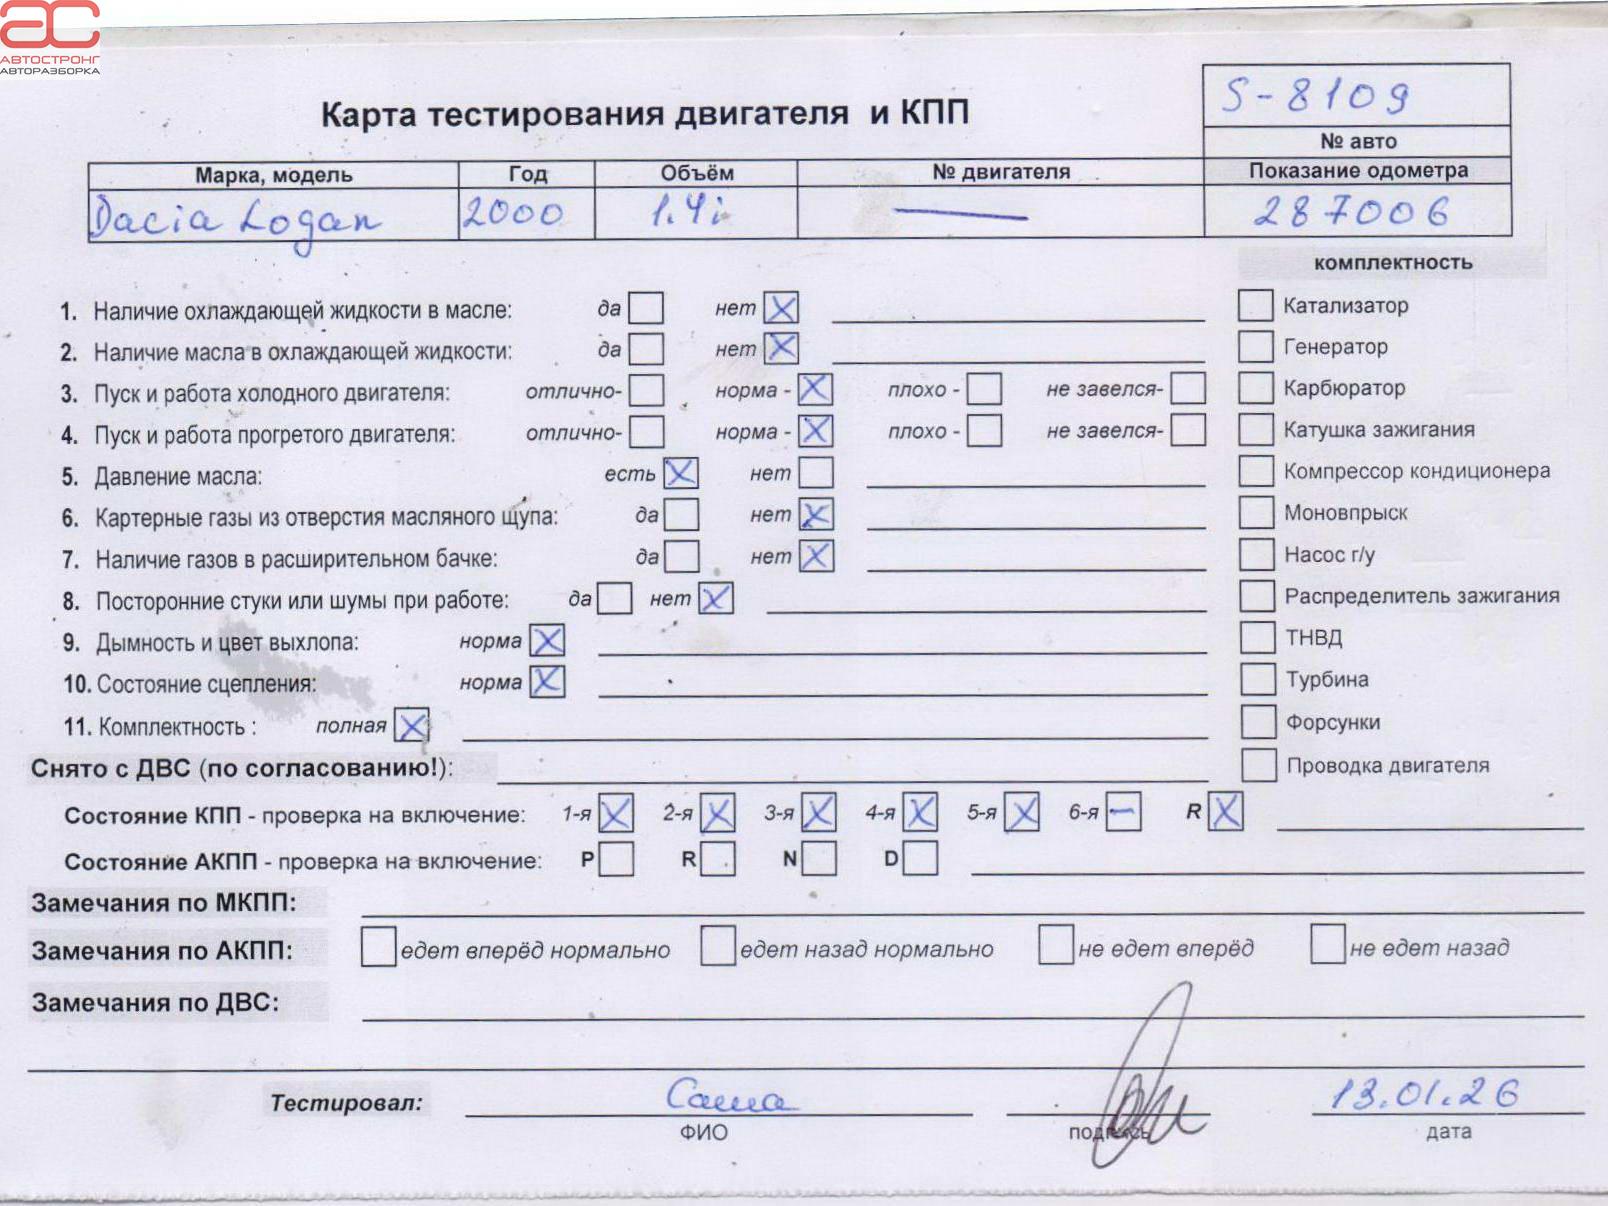 АС
АВТОСТРОНГ
АВТОРАЗБОРКА
S-8109
Карта тестирования двигателя и КПП
№ авто
Марка, модель Год Объём № двигателя Показание одометра
Dacia Logan 2000 1.4i — 287006
комплектность
1. Наличие охлаждающей жидкости в масле: да нет X Катализатор
2. Наличие масла в охлаждающей жидкости: да нет X Генератор
3. Пуск и работа холодного двигателя: отлично- норма - X плохо - не завелся- Карбюратор
4. Пуск и работа прогретого двигателя: отлично- норма - X плохо - не завелся- Катушка зажигания
5. Давление масла: есть X нет Компрессор кондиционера
6. Картерные газы из отверстия масляного щупа: да нет X Моновпрыск
7. Наличие газов в расширительном бачке: да нет X Насос г/у
8. Посторонние стуки или шумы при работе: да нет X Распределитель зажигания
9. Дымность и цвет выхлопа: норма X ТНВД
10. Состояние сцепления: норма X Турбина
11. Комплектность : полная X Форсунки
Снято с ДВС (по согласованию!): Проводка двигателя
Состояние КПП - проверка на включение: 1-я X 2-я X 3-я X 4-я X 5-я X 6-я — R X
Состояние АКПП - проверка на включение: P R N D
Замечания по МКПП:
Замечания по АКПП: едет вперёд нормально едет назад нормально не едет вперёд не едет назад
Замечания по ДВС:
Тестировал: Саша 13.01.26
ФИО подпись дата